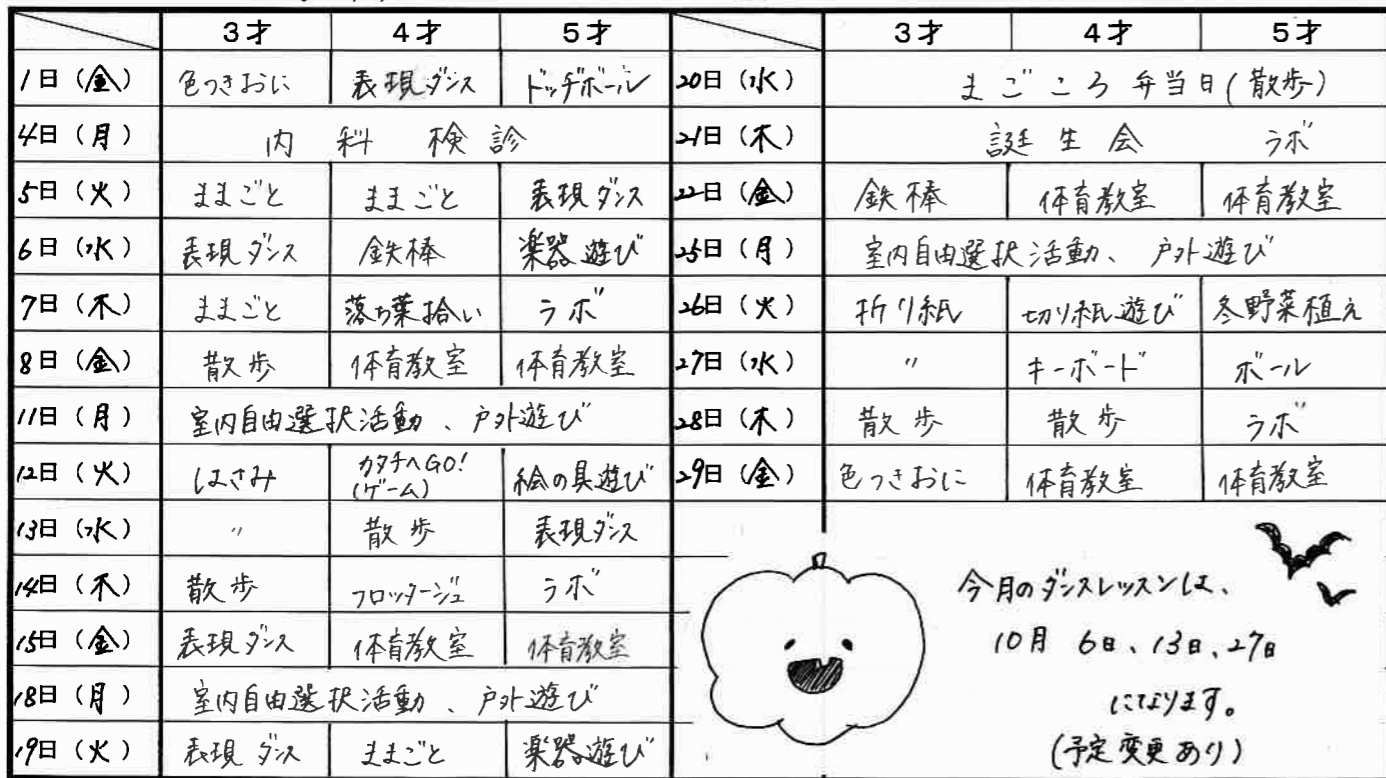 3才 4才 5才
1日(金) 色つきおに 表現ダンス ドッヂボール
4日(月) 内科検診
5日(火) ままごと ままごと 表現ダンス
6日(水) 表現ダンス 鉄棒 楽器遊び
7日(木) ままごと 落ち葉拾い ラボ
8日(金) 散歩 体育教室 体育教室
11日(月) 室内自由選択活動、戸外遊び
12日(火) はさみ カタチへGO! 絵の具遊び
(ゲーム)
13日(水) 〃 散歩 表現ダンス
14日(木) 散歩 フロッタージュ ラボ
15日(金) 表現ダンス 体育教室 体育教室
18日(月) 室内自由選択活動、戸外遊び
19日(火) 表現ダンス ままごと 楽器遊び
3才 4才 5才
20日(水) まごころ弁当日(散歩)
21日(木) 誕生会 ラボ
22日(金) 鉄棒 体育教室 体育教室
25日(月) 室内自由選択活動、戸外遊び
26日(火) 折り紙 切り紙遊び 冬野菜植え
27日(水) 〃 キーボード ボール
28日(木) 散歩 散歩 ラボ
29日(金) 色つきおに 体育教室 体育教室
今月のダンスレッスンは、
10月 6日、13日、27日
になります。
(予定変更あり)